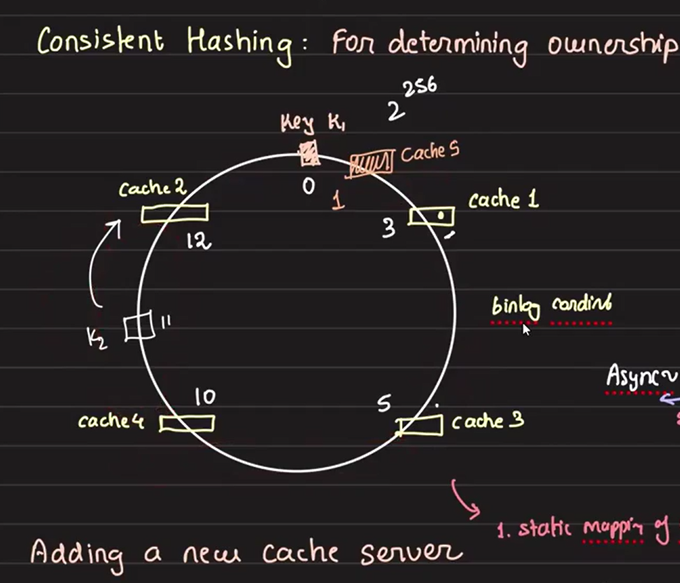 Consistent Hashing: For determining ownership
2^256
Key K1
Cache 5
0
1
Cache 2
12
3
Cache 1
K2
11
10
5
cache 4
Cache 3
Async
1. static mapping of
Adding a new cache server